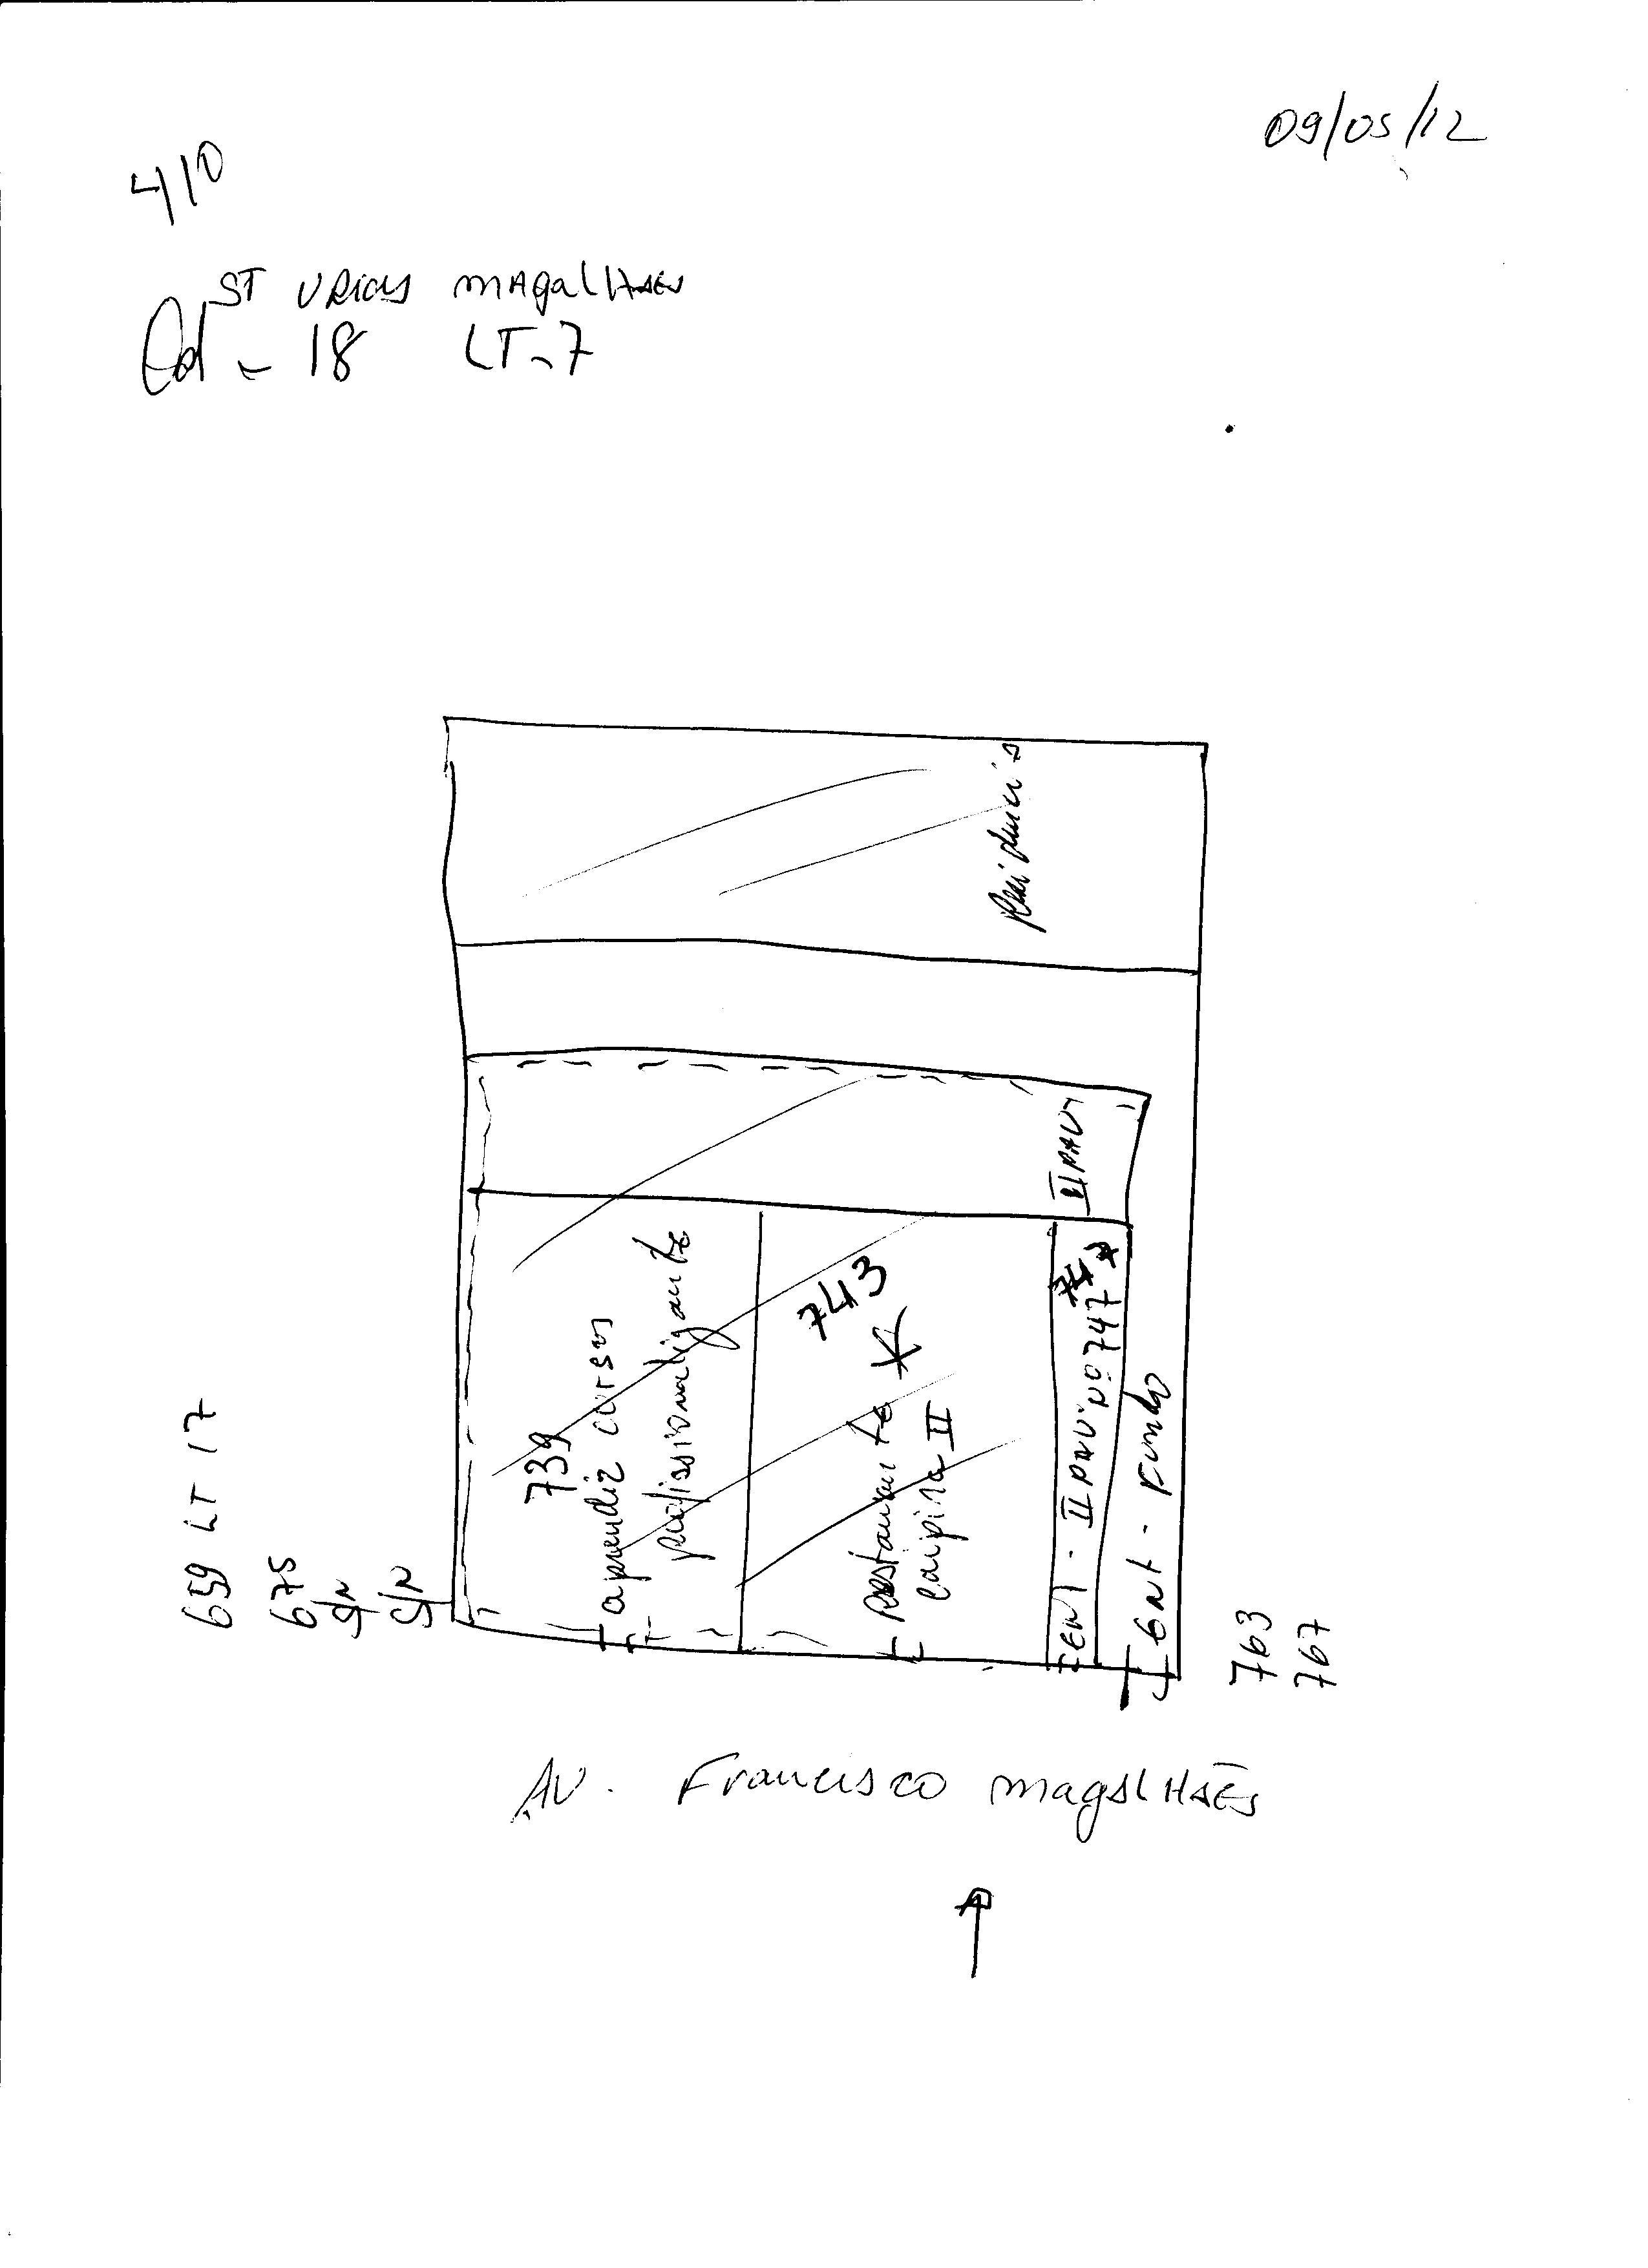 09/05/12
410
ST URIAS MAGALHAES
Qd - 18 LT-7
Residencia
II PAV
739
aprendiz cursos
profissionalizante
743
Restaurante
Caipira II
747
ENT - II PAV. Nº 747
ENT - FUNDO
659 LT 17
675
S/N
S/N
763
767
AV. Francisco MAGALHÃES